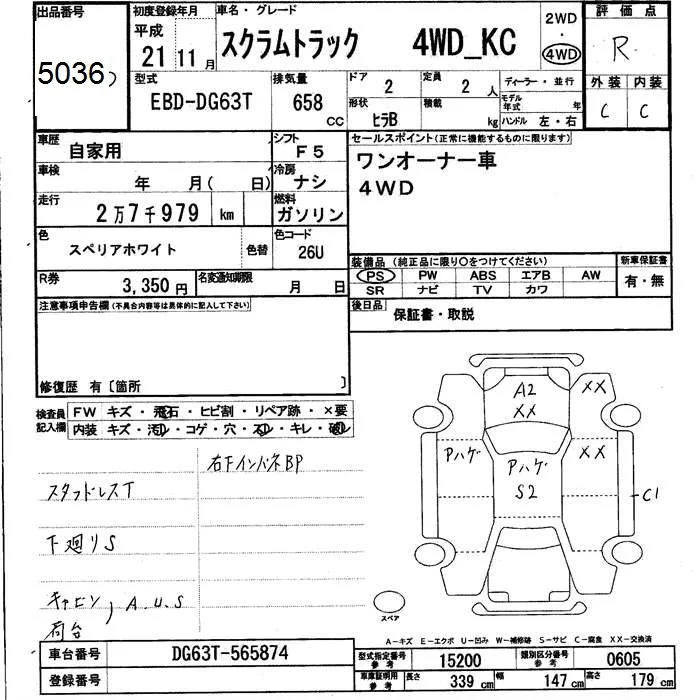 出品番号
5036
初度登録年月
平成
21年 11月
車名・グレード
スクラムトラック 4WD_KC
2WD
・
4WD
評価点
R
型式
EBD-DG63T
排気量
658 CC
ドア
2
定員
2 人
ディーラー・並行
形状
ヒラB
積載
kg
モデル年式 年
ハンドル 左・右
外装 内装
C C
車歴
自家用
シフト
F5
セールスポイント(正常に機能するものに限ります)
ワンオーナー車
4WD
車検
年 月( 日)
冷房
ナシ
走行
2万7千979 km
燃料
ガソリン
色
スペリアホワイト
色替
色コード
26U
装備品(純正品に限り○をつけてください)
PS PW ABS エアB AW
SR ナビ TV カワ
新車保証書
有・無
R券
3,350円
名変通知期限
月 日
後日品
保証書・取説
注意事項申告欄(不具合内容等は具体的に記入して下さい)
修復歴 有〔箇所 〕
検査員記入欄
FW キズ・飛石・ヒビ割・リペア跡・×要
内装 キズ・汚レ・コゲ・穴・スレ・キレ・破レ
右下インパネBP
スタッドレスT
下廻りS
キャビン, A.U.S
荷台
A2
XX
XX
Pハゲ
Pハゲ
S2
XX
C1
スペア
A-キズ E-エクボ U-凹み W-補修跡 S-サビ C-腐食 XX-交換済
車台番号
DG63T-565874
登録番号
型式指定番号
参考
15200
類別区分番号
参考
0605
車庫証明用
参考
長さ
339 cm
幅
147 cm
高さ
179 cm